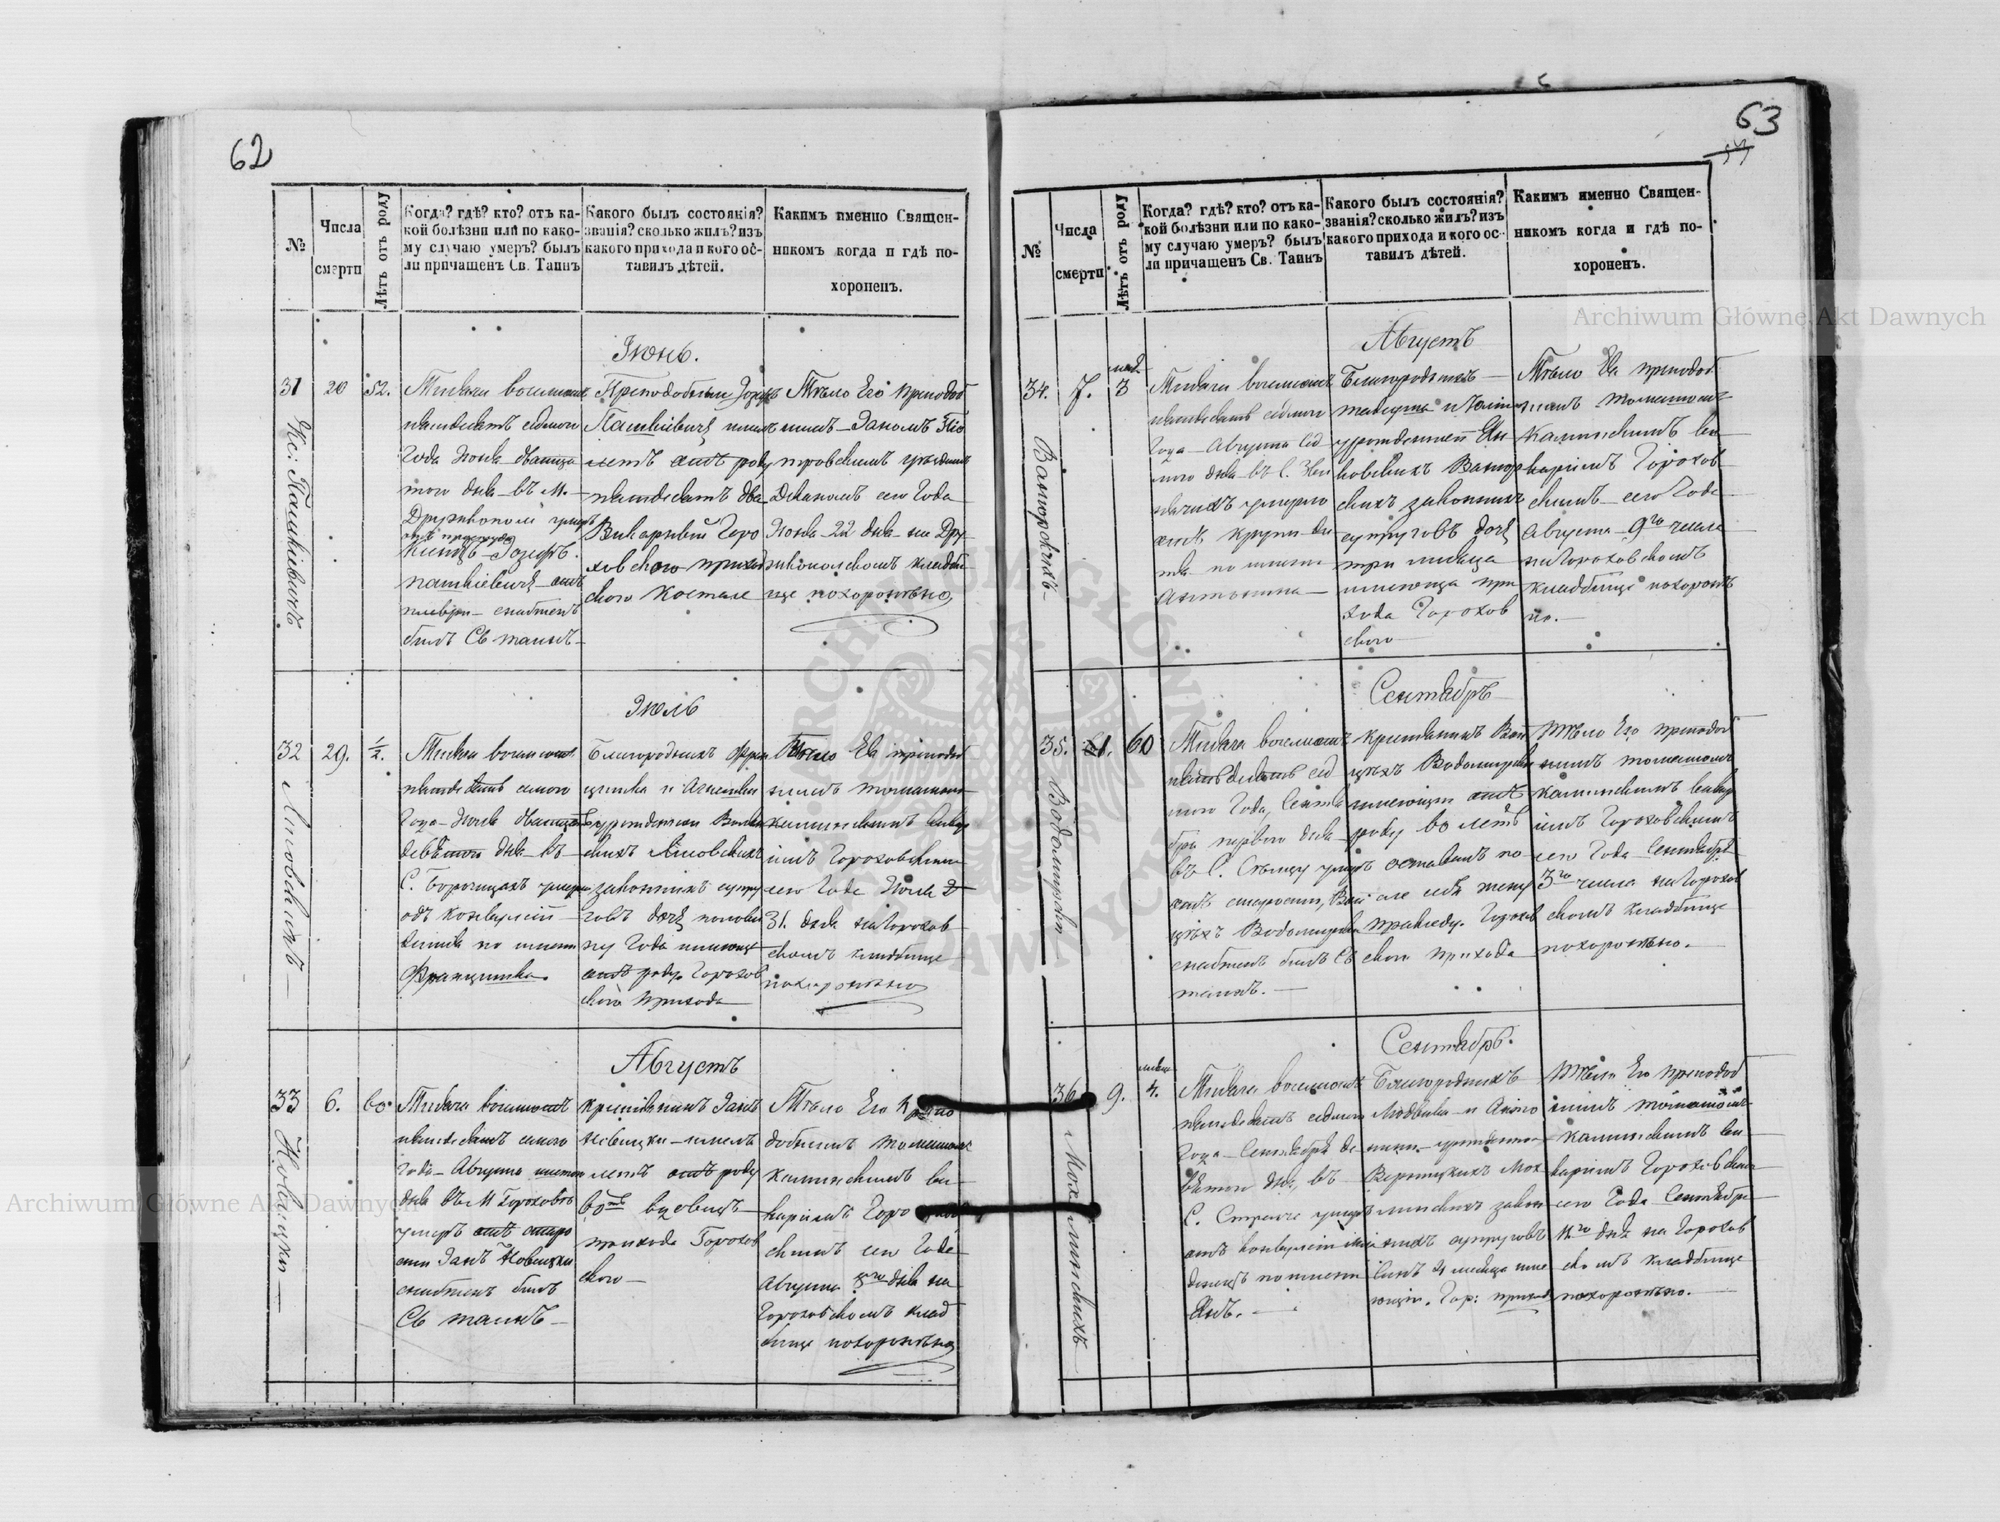 62
№
Числа
смерти
Лѣтъ отъ роду
Когда? гдѣ? кто? отъ ка-
кой болѣзни или по како-
му случаю умеръ? былъ
ли причащенъ Св. Таинъ
Какого былъ состоянія?
званія? сколько жилъ? изъ
какого прихода и кого ос-
тавилъ дѣтей.
Какимъ именно Священ-
никомъ когда и гдѣ по-
хороненъ.
Іюнь.
31
20
52.
Кс. Пашкіевичъ
Тысяча восемьсотъ
пятьдесятъ седмого
Года Іюня двадца
того дня въ М.
Дружкополи умеръ
Ксіндзъ Іозефъ
Пашкіевичъ отъ
плевры снабженъ
былъ Св таинъ
Преподобный Іозефъ
Пашкіевичъ имѣлъ
летъ отъ роду
пятьдесятъ два
Викарный Горо
ховского приход
ского Костела
Тѣло Его преподоб
нымъ Іаномъ Піо
тровскимъ уѣзднымъ
Деканомъ сего Года
Іюня 22 дня на Дру
жкопольскомъ кладби
ще похоронѣно
Іюль
32
29.
1/2.
Линовскихъ
Тысяча восемьсотъ
пятьдесятъ семого
Года Іюля двадцать
девѣтого дня въ
С. Борочицахъ умерла
одъ конвульсіи
по имени
Францишка
Благородныхъ Фран
цишка и Агнешки
законныхъ супру
говъ дочь полови
ну Года имеюща
отъ роду Горохов
ского прихода
Тѣло Ея преподоб
нымъ Томашомъ
Каминскимъ викар
імъ Гороховскимъ
сего Года Іюля
31. дня на Горохов
скомъ кладбище
похоронѣно
Августъ
33
6.
80.
Новицки
Тысяча восемьсотъ
пятьдесятъ семого
Года Августа шестого
дня въ М Гороховѣ
умеръ отъ старо
сти Іанъ Новицки
снабженъ былъ
Св таинъ
Крестьянинъ Іанъ
Новицки имелъ
летъ отъ роду
80 вдовецъ
прихода Горохов
ского
Тѣло Его Препо
добнымъ Томашомъ
Каминскимъ ви
каріимъ Горохов
скимъ сего Года
Августа 8го дня на
Гороховскомъ клад
бище похоронѣно
63
57
№
Числа
смерти
Лѣтъ отъ роду
Когда? гдѣ? кто? отъ ка-
кой болѣзни или по како-
му случаю умеръ? былъ
ли причащенъ Св. Таинъ
Какого былъ состоянія?
званія? сколько жилъ? изъ
какого прихода и кого ос-
тавилъ дѣтей.
Какимъ именно Священ-
никомъ когда и гдѣ по-
хороненъ.
Августъ
34.
7.
3
Ванторскихъ
Тысяча восемьсотъ
пятьдесятъ седмого
Года Августа сед
мого дня въ С.
умерло
отъ крупи
по имени
Антонина
Благородныхъ
Вантор
скихъ законныхъ
супруговъ дочь
три месяца
имеюща при
хода Горохов
ского
Тѣло Ея преподоб
нымъ Томашомъ
Каминскимъ ви
каріимъ Горохов
скимъ сего Года
Августа 9го числа
на Гороховскомъ
кладбище похоронѣ
но.
Сентябръ
35.
1.
60
Водомирски
Тысяча восемьсотъ
пятьдесятъ сед
мого Года, Сентя
бра первого дня
въ С. умеръ
отъ старости, Вой
цѣхъ Водомирски
снабженъ былъ Св
таинъ.
Крестьянинъ Вой
цѣхъ Водомирски
имеющи отъ
роду 60 летъ
оставилъ по
сле себя жену
Горохов
ского прихода
Тѣло Его преподоб
нымъ Томашомъ
Каминскимъ викар
імъ Гороховскимъ
сего Года Сентября
3го числа на Горохов
скомъ кладбище
похоронѣно.
Сентябръ.
36
9.
4.
Мохлинскихъ
Тысяча восемьсотъ
пятьдесятъ седмого
Года Сентября де
вѣтого дня, въ
С. умеръ
отъ конвульсіи
по имени
Янъ.
Благородныхъ
Людвика и Анто
нины
Мох
линскихъ закон
ныхъ супруговъ
сынъ 4 месяца име
ющи. Гор: приход
Тѣло Его преподоб
нымъ Томашомъ
Каминскимъ ви
каріимъ Гороховским
сего Года Сентября
11го дня на Горохов
скомъ кладбище
похоронѣно.
Archiwum Główne Akt Dawnych
Archiwum Główne Akt Dawnych